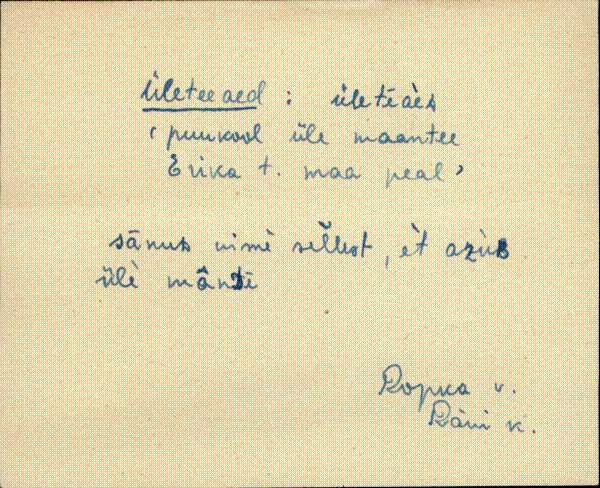 Ületee aed : ületēàes
( puukool üle maantee
Erika t. maa peal )
sānus nimè sellest, èt azùs
ülè mântè
Ropka v.
Räni k.